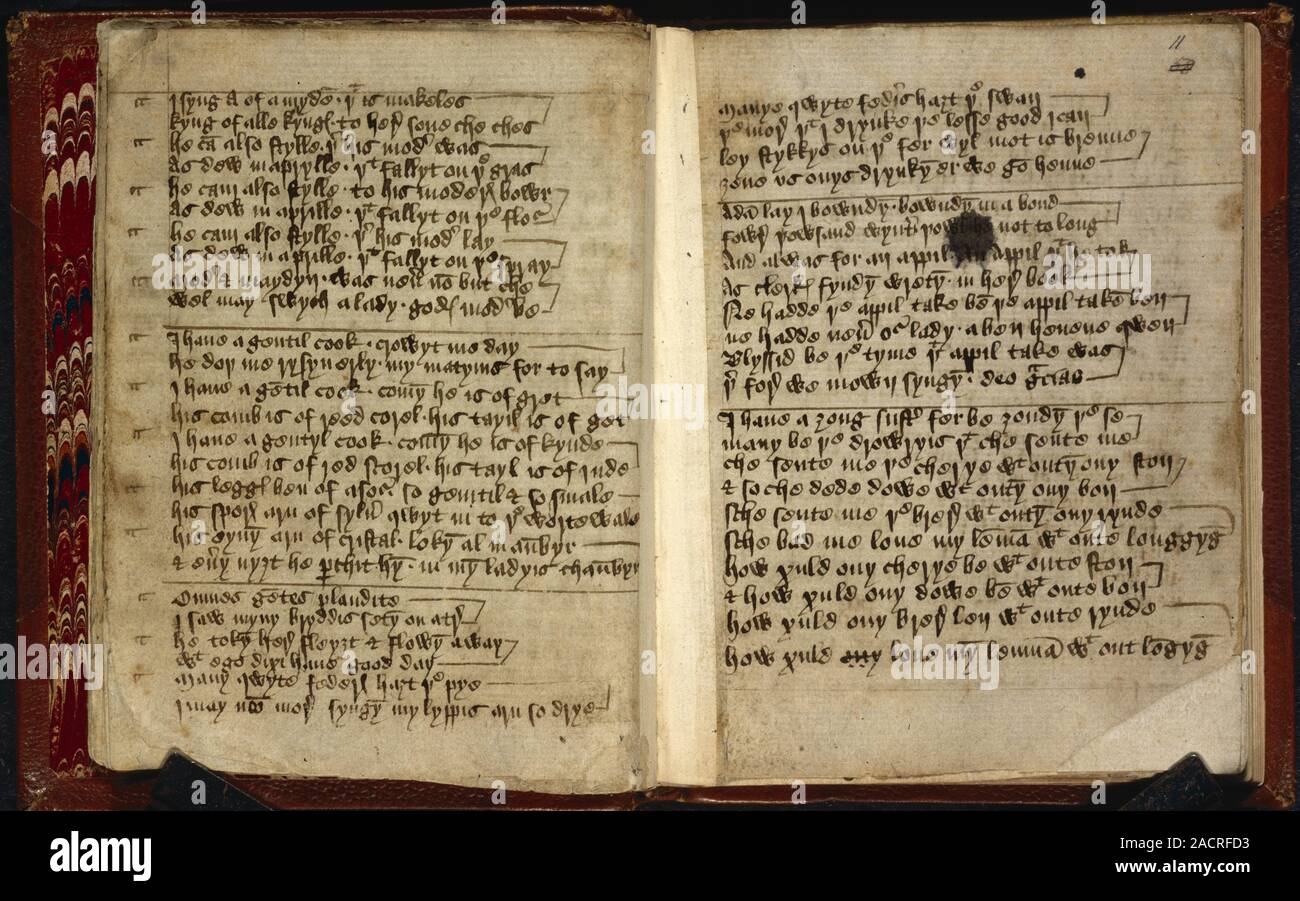 I syng A of a myde · þͭ is makeles
kyng of alle kyngꝭ · to herꝭ sone che ches
he cā also stylle þͬ his modꝰ was
As dew in aprylle · þͭ fallyt on þͤ gras
he cam also stylle · to his moderꝭ bowr
As dew in aprille · þͭ fallyt on þͤ flouꝭ
he cam also stylle · þͬ his modꝰ lay
As dew in aprille · þͭ fallyt on þͤ spray
modꝰ & maydyn · was neuꝰ nō but che
wel may swych a lady · godꝭ modꝰ be
I haue a gentil cook · crowyt me day
he doþ me rysyn erly · my matyins for to say
I haue a gētil cook · comȳ he is of gret
his comb is of reed corel · his tayil is of get
I haue a gentyl cook · comly he is of kynde
his comb is of red scorel · his tayl is of inde
his leggꝭ ben of asorꝭ so gentil & so smale
his sporꝭ arn of syluꝰ qwyt in to þͤ wortewale
his eynȳ arn of cristal · lokȳ al in aūbyr
& euꝰy nyȝt he pꝰchit hȳ · in mȳ ladyis chaūbyr
Omnes gētes plaudite
I saw myny bryddis setȳ on a trꝭ
he tokȳ herꝭ fleyȝt & flowȳ a way
wͭ ego dixi haue good day
Many qwyte federꝭ haȝt þͤ pye
I may nō morꝭ syngȳ my lyppis arn so drye
11
Manye qwyte fedꝰis haȝt þͤ swan
þe morꝭ þͭ I drynke þe lesse good I can
ley stykkys on þͤ fer wyl mot is brenne
ȝeue vs onys drynkȳ er we gō henne
Adā lay I bowndȳ · bowndȳ in a bond
fowrꝭ þowsand wyntꝰ þowt he not to long
And al was for an appil · An appil þͭ he tok
As clerkꝭ fyndȳ wretȳ · in herꝭ book
Ne hadde þe appil take bē þe appil takē ben
ne hadde neuꝰ ouꝭ lady · a ben heuene qwen
Blyssid be þͤ tyme þͭ appil take was
þͬ forꝭ we mown syngȳ · deo gͣcias
I haue a ȝong sustꝰ fer be ȝondȳ þͤ se
many be þe drowryis þͭ che sente me
che sente me þͤ cherye wͭ outȳ ony ston
& so che dede dowe wͭ outȳ ony bon
sche sente me þͤ brerꝭ wͭ outȳ ony rynde
sche bad me loue my lēmā wͭ oute longgyg̃
how xuld ony cherye be wͭ oute ston
& how xuld ony dowe bē wͭ oute bon
how xuld ony brerꝭ ben wͭ oute rynde
how xuld ony loue mȳ lemmā wͭ out lōgyg̃
alamy
Image ID: 2ACRFD3
www.alamy.com